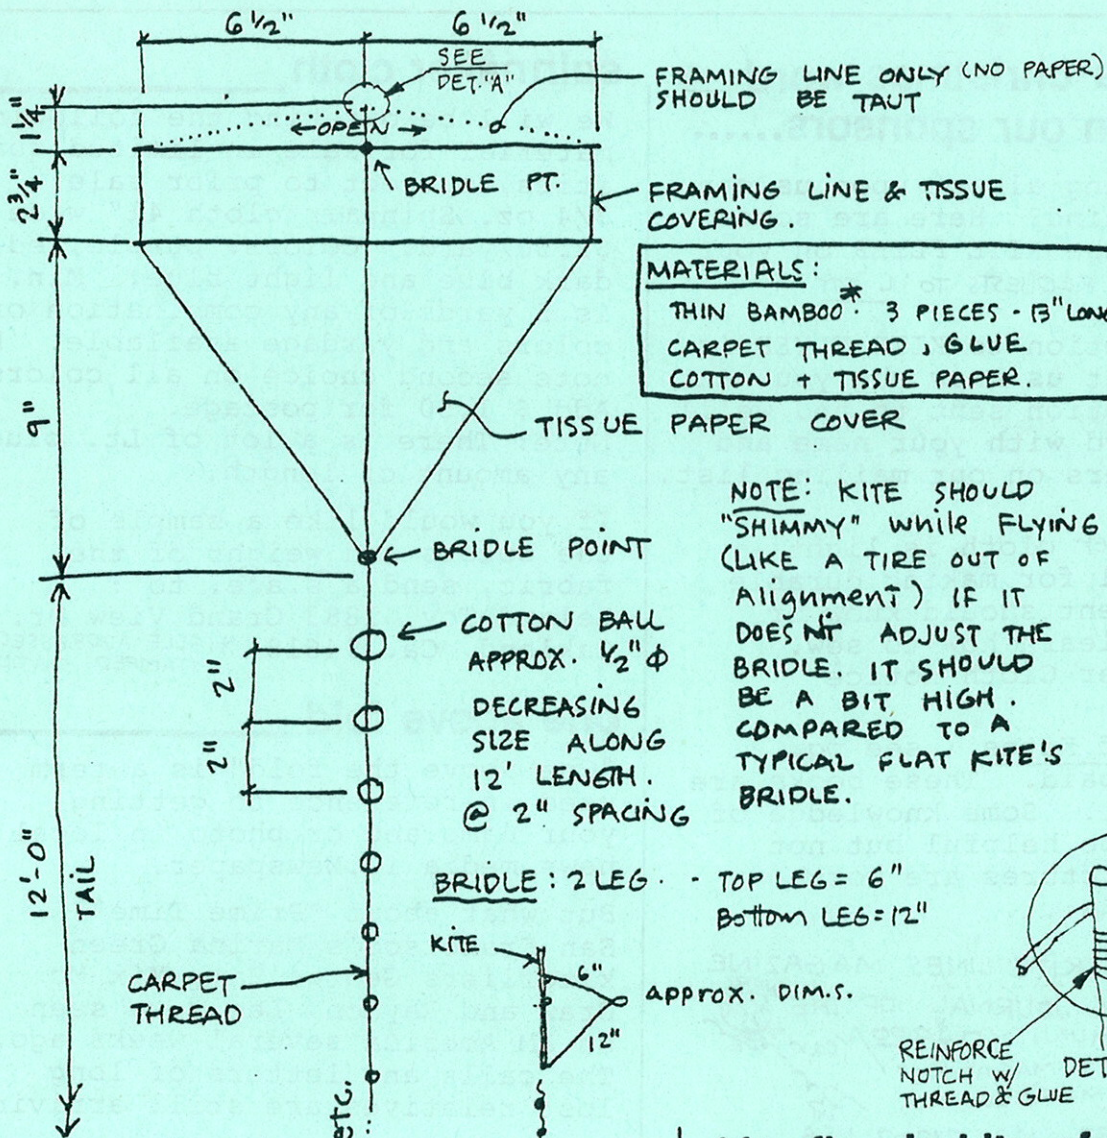 6 1/2"
6 1/2"
SEE
DET. "A"
FRAMING LINE ONLY (NO PAPER)
SHOULD BE TAUT
1 1/4"
←OPEN→
BRIDLE PT.
2 3/4"
FRAMING LINE & TISSUE
COVERING.
MATERIALS:
THIN BAMBOO* · 3 PIECES - 13" LONG
CARPET THREAD, GLUE
COTTON + TISSUE PAPER.
9"
TISSUE PAPER COVER
NOTE: KITE SHOULD
"SHIMMY" while FLYING
(LIKE A TIRE OUT OF
Alignment) IF IT
DOESN'T ADJUST THE
BRIDLE. IT SHOULD
BE A BIT HIGH.
COMPARED TO A
TYPICAL FLAT KITE'S
BRIDLE.
BRIDLE POINT
COTTON BALL
APPROX. 1/2" ϕ
DECREASING
SIZE ALONG
12' LENGTH.
@ 2" SPACING
2"
2"
12'-0"
TAIL
BRIDLE: 2 LEG. - TOP LEG = 6"
Bottom LEG = 12"
KITE
6"
approx. DIM.S.
12"
CARPET
THREAD
etc.
REINFORCE
NOTCH W/
THREAD & GLUE